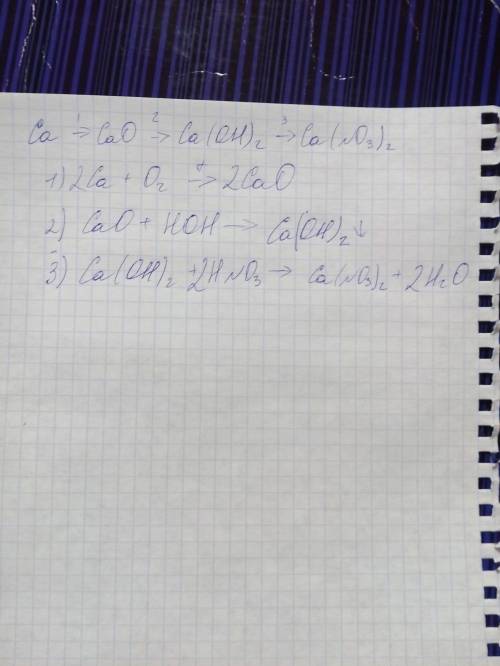 Ca ¹→ CaO ²→ Ca(OH)₂ ³→ Ca(NO₃)₂
1) 2Ca + O₂ t→ 2CaO
2) CaO + HOH → Ca(OH)₂↓
3) Ca(OH)₂ + 2HNO₃ → Ca(NO₃)₂ + 2H₂O